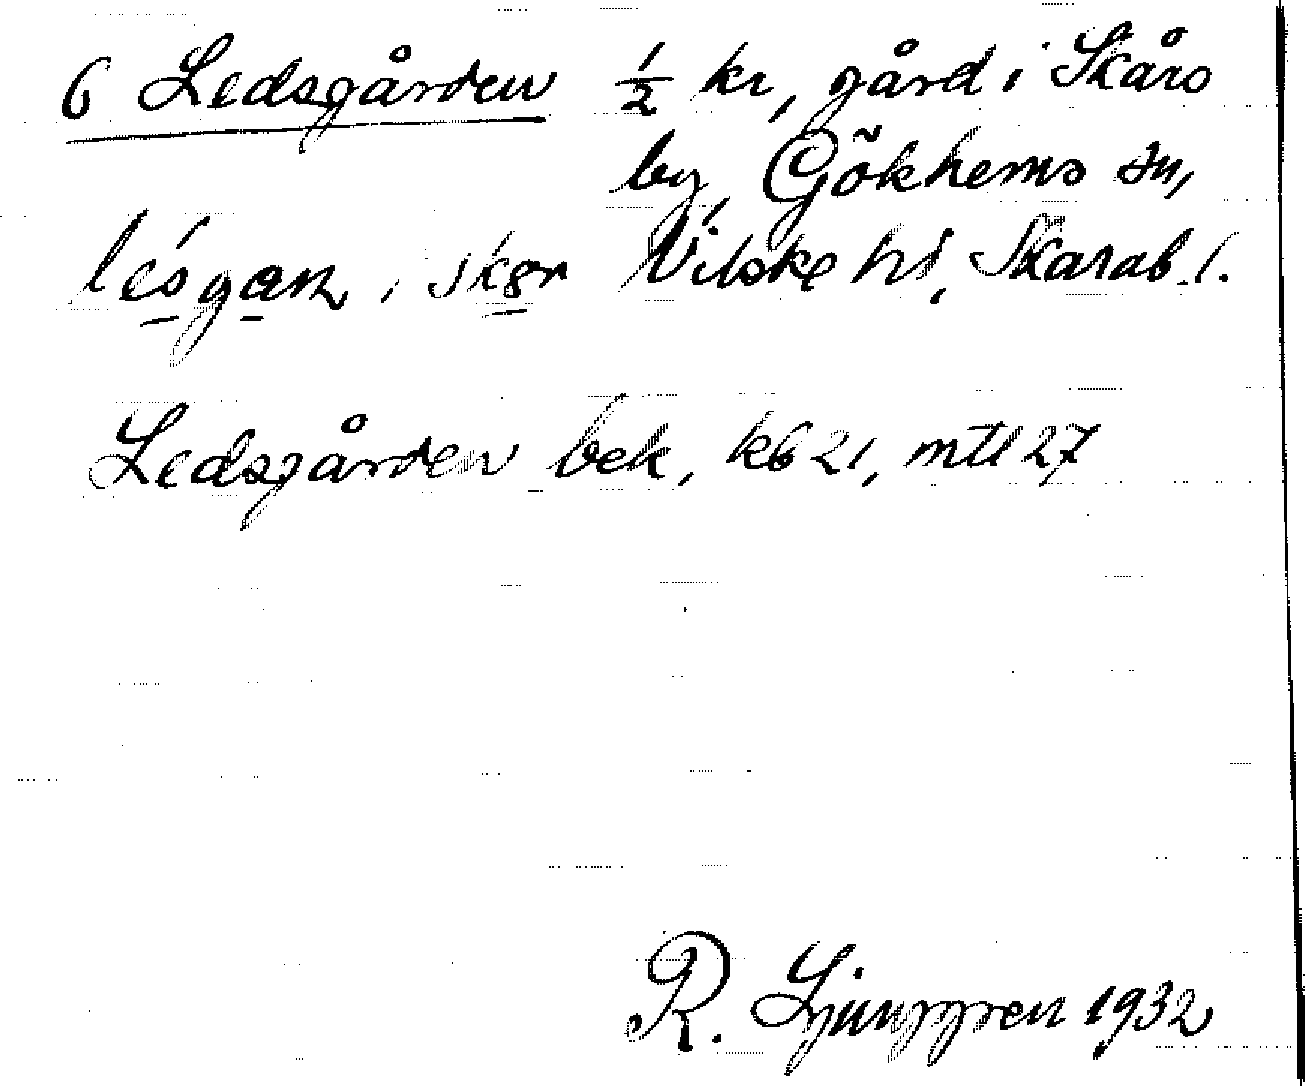 6 Ledsgården ½ kr, gård i Skårs
by, Gökhems sn,
Vilske hd, Skarab. l.
lésgaɳ, i skgr
Ledsgården bek, kb 21, mtl 27
R. Ljunggren 1932